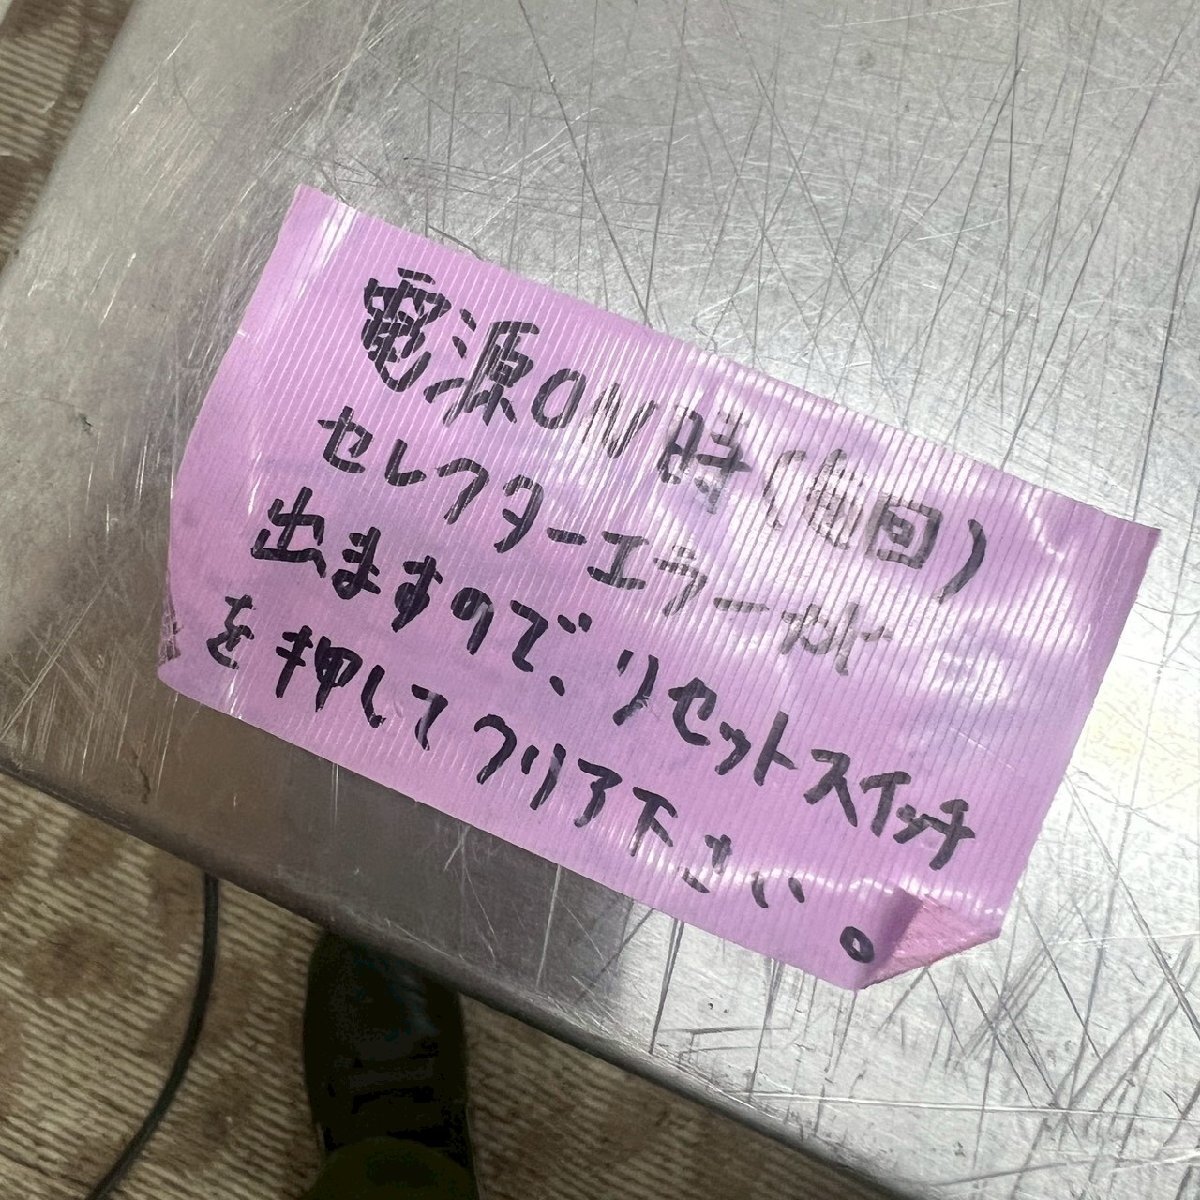 電源ON時(毎回)
セレクターエラーが
出ますので、リセットスイッチ
を押してクリア下さい。